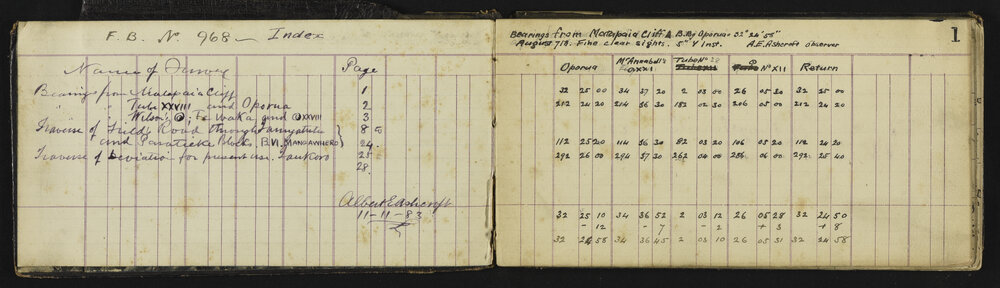 F. B. No. 968 — Index
Name of Survey Page
Bearings from Matapaia Cliff 1
" " Tube XXVIII and Oporua 2
" " Wilson's ⊙; Te Waka, and ⊙ XXVIII 3
Traverse of Field's Road through 8
and Paratieke Blocks, B. VI, MANGAWHERO 24
Traverse of Deviation for present use. 25
28.
Albert E Ashcroft
11-11-83
1
Bearings from Matapaia Cliff △ B. By Oporua = 32° 24' 58"
August 7/8. Fine clear sights. 5" Y Inst. A.E. Ashcroft observer
Oporua McAnnabell's Tube No 28 No XII Return
32 25 00 34 37 20 2 03 00 26 05 30 32 25 00
212 24 20 214 36 30 182 02 30 206 05 00 212 24 20
112 25 20 114 36 30 82 03 20 106 05 20 112 24 20
292 26 00 294 37 30 262 04 00 286 06 00 292 25 40
32 25 10 34 36 52 2 03 12 26 05 28 32 24 50
- 12 - 7 - 2 + 3 + 8
32 24 58 34 36 45 2 03 10 26 05 31 32 24 58